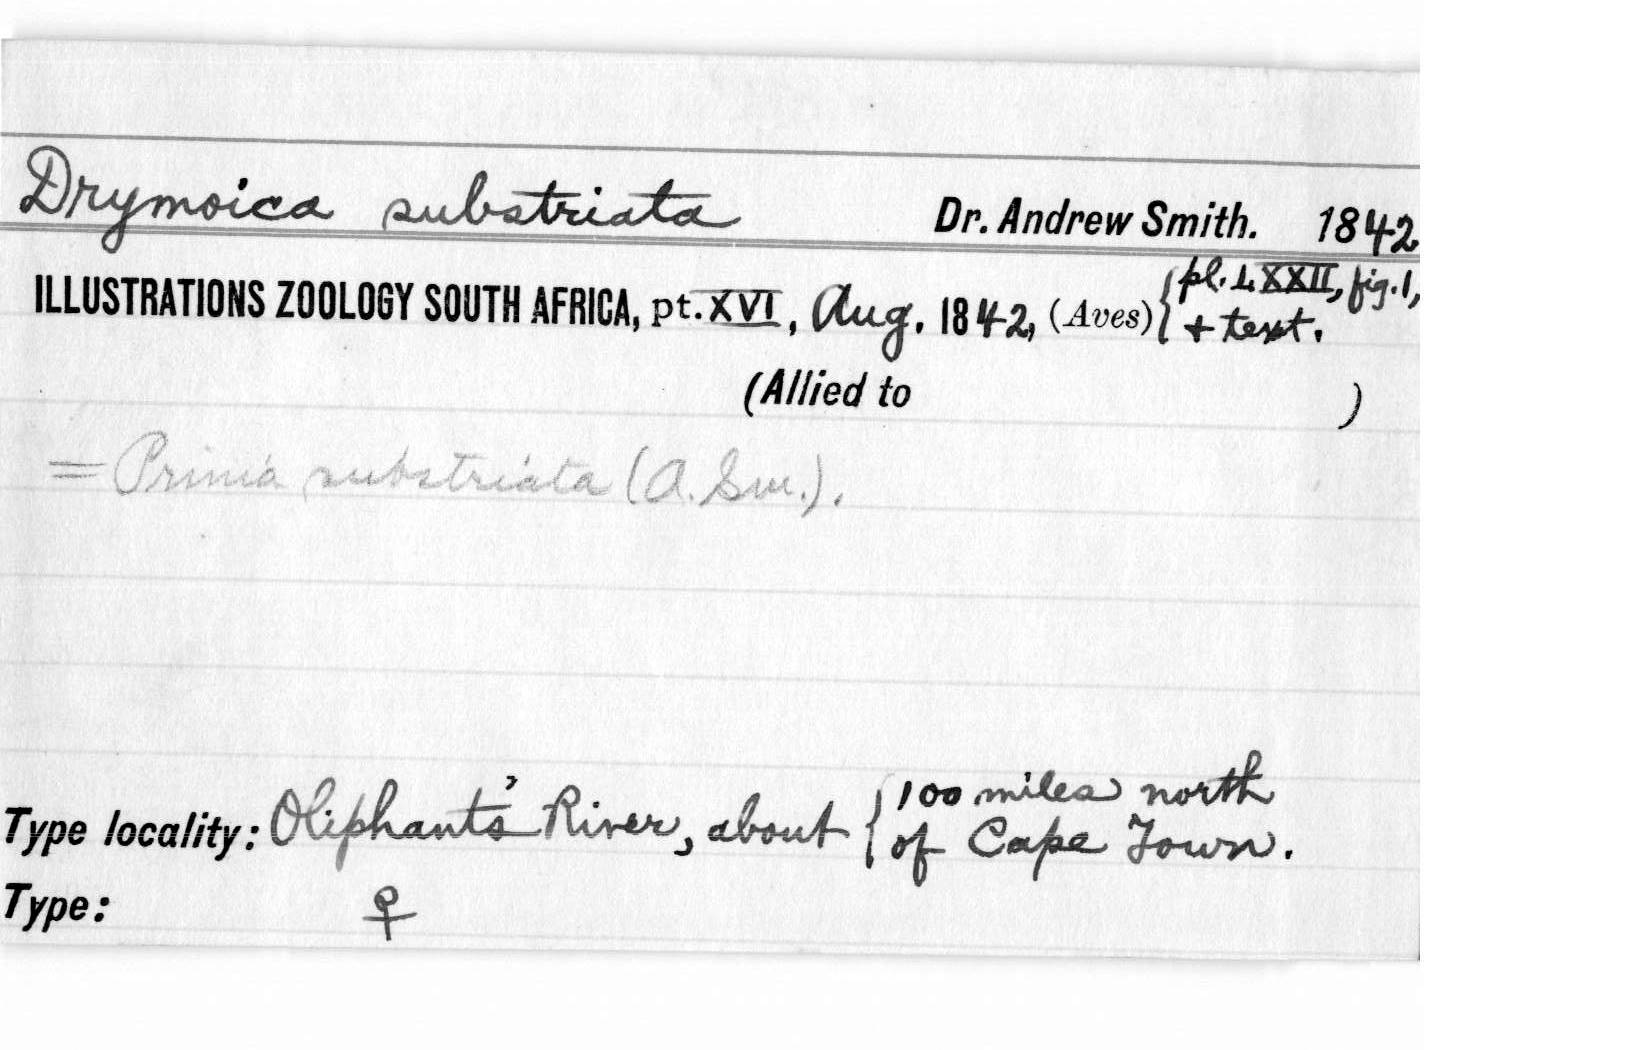 Drymoica substriata Dr. Andrew Smith. 1842
ILLUSTRATIONS ZOOLOGY SOUTH AFRICA, pt. XVI, Aug. 1842, (Aves) { pl. LXXII, fig. 1,
+ text.
(Allied to )
= Prinia substriata (A. Sm.).
Type locality: Oliphant's River, about { 100 miles north
of Cape Town.
Type: ♀